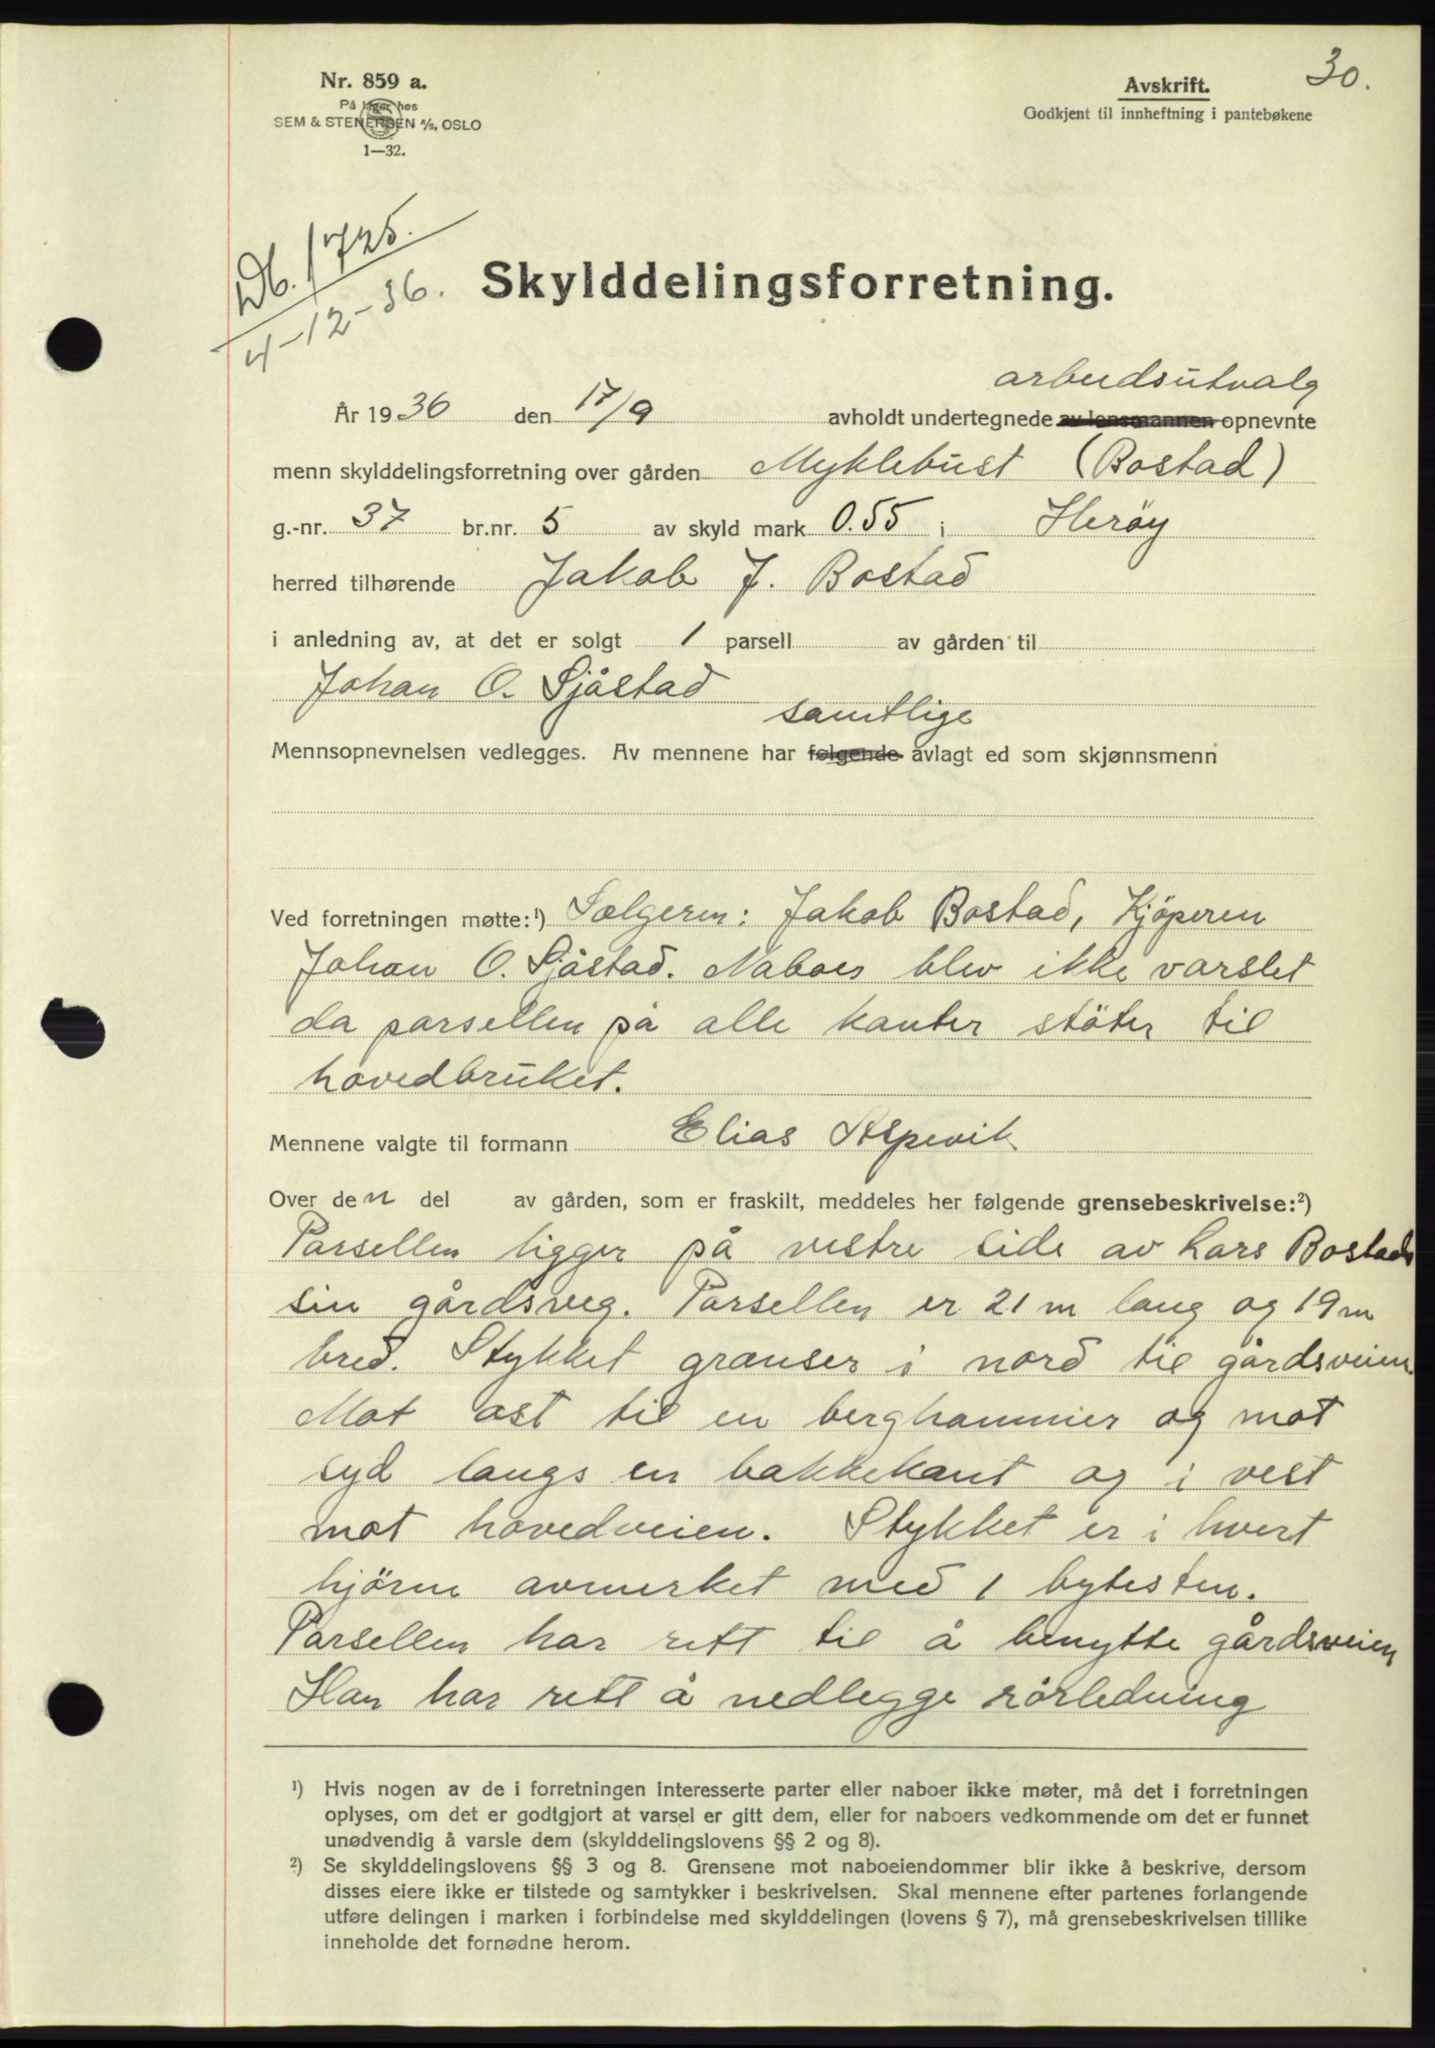 30.
Nr. 859 a.
På lager hos
SEM & STENERSEN A/S, OSLO
1—32.
Avskrift.
Godkjent til innheftning i pantebøkene
Db. 1725.
4-12-36.
Skylddelingsforretning.
arbeidsutvalg
År 1936 den 17/9 avholdt undertegnede av lensmannen opnevnte
menn skylddelingsforretning over gården Myklebust (Bostad)
g.-nr. 37 br.nr. 5 av skyld mark 0.55 i Herøy
herred tilhørende Jakob J. Bostad
i anledning av, at det er solgt 1 parsell av gården til
Johan O. Sjåstad
samtlige
Mennsopnevnelsen vedlegges. Av mennene har følgende avlagt ed som skjønnsmenn
Ved forretningen møtte:¹) Sælgeren: Jakob Bostad, Kjöperen
Johan O. Sjåstad. Naboes blev ikke varslet
da parsellen på alle kanter stöter til
hovedbruket.
Mennene valgte til formann Elias Aspevik
Over den del av gården, som er fraskilt, meddeles her følgende grensebeskrivelse:²)
Parsellen ligger på vestre side av Lars Bostads
sin gårdsveg. Parsellen er 21 m lang og 19 m
bred. Stykket grenser i nord til gårdsveien
Mot ost til en berghammer og mot
syd langs en bakkekant og i vest
mot hovedveien. Stykket er i hvert
hjörne avmerket med 1 bytesten.
Parsellen har rett til å benytte gårdsveien
Han har rett å nedlegge rörledning
¹) Hvis nogen av de i forretningen interesserte parter eller naboer ikke møter, må det i forretningen
oplyses, om det er godtgjort at varsel er gitt dem, eller for naboers vedkommende om det er funnet
unødvendig å varsle dem (skylddelingslovens §§ 2 og 8).
²) Se skylddelingslovens §§ 3 og 8. Grensene mot naboeiendommer blir ikke å beskrive, dersom
disses eiere ikke er tilstede og samtykker i beskrivelsen. Skal mennene efter partenes forlangende
utføre delingen i marken i forbindelse med skylddelingen (lovens § 7), må grensebeskrivelsen tillike
inneholde det fornødne herom.